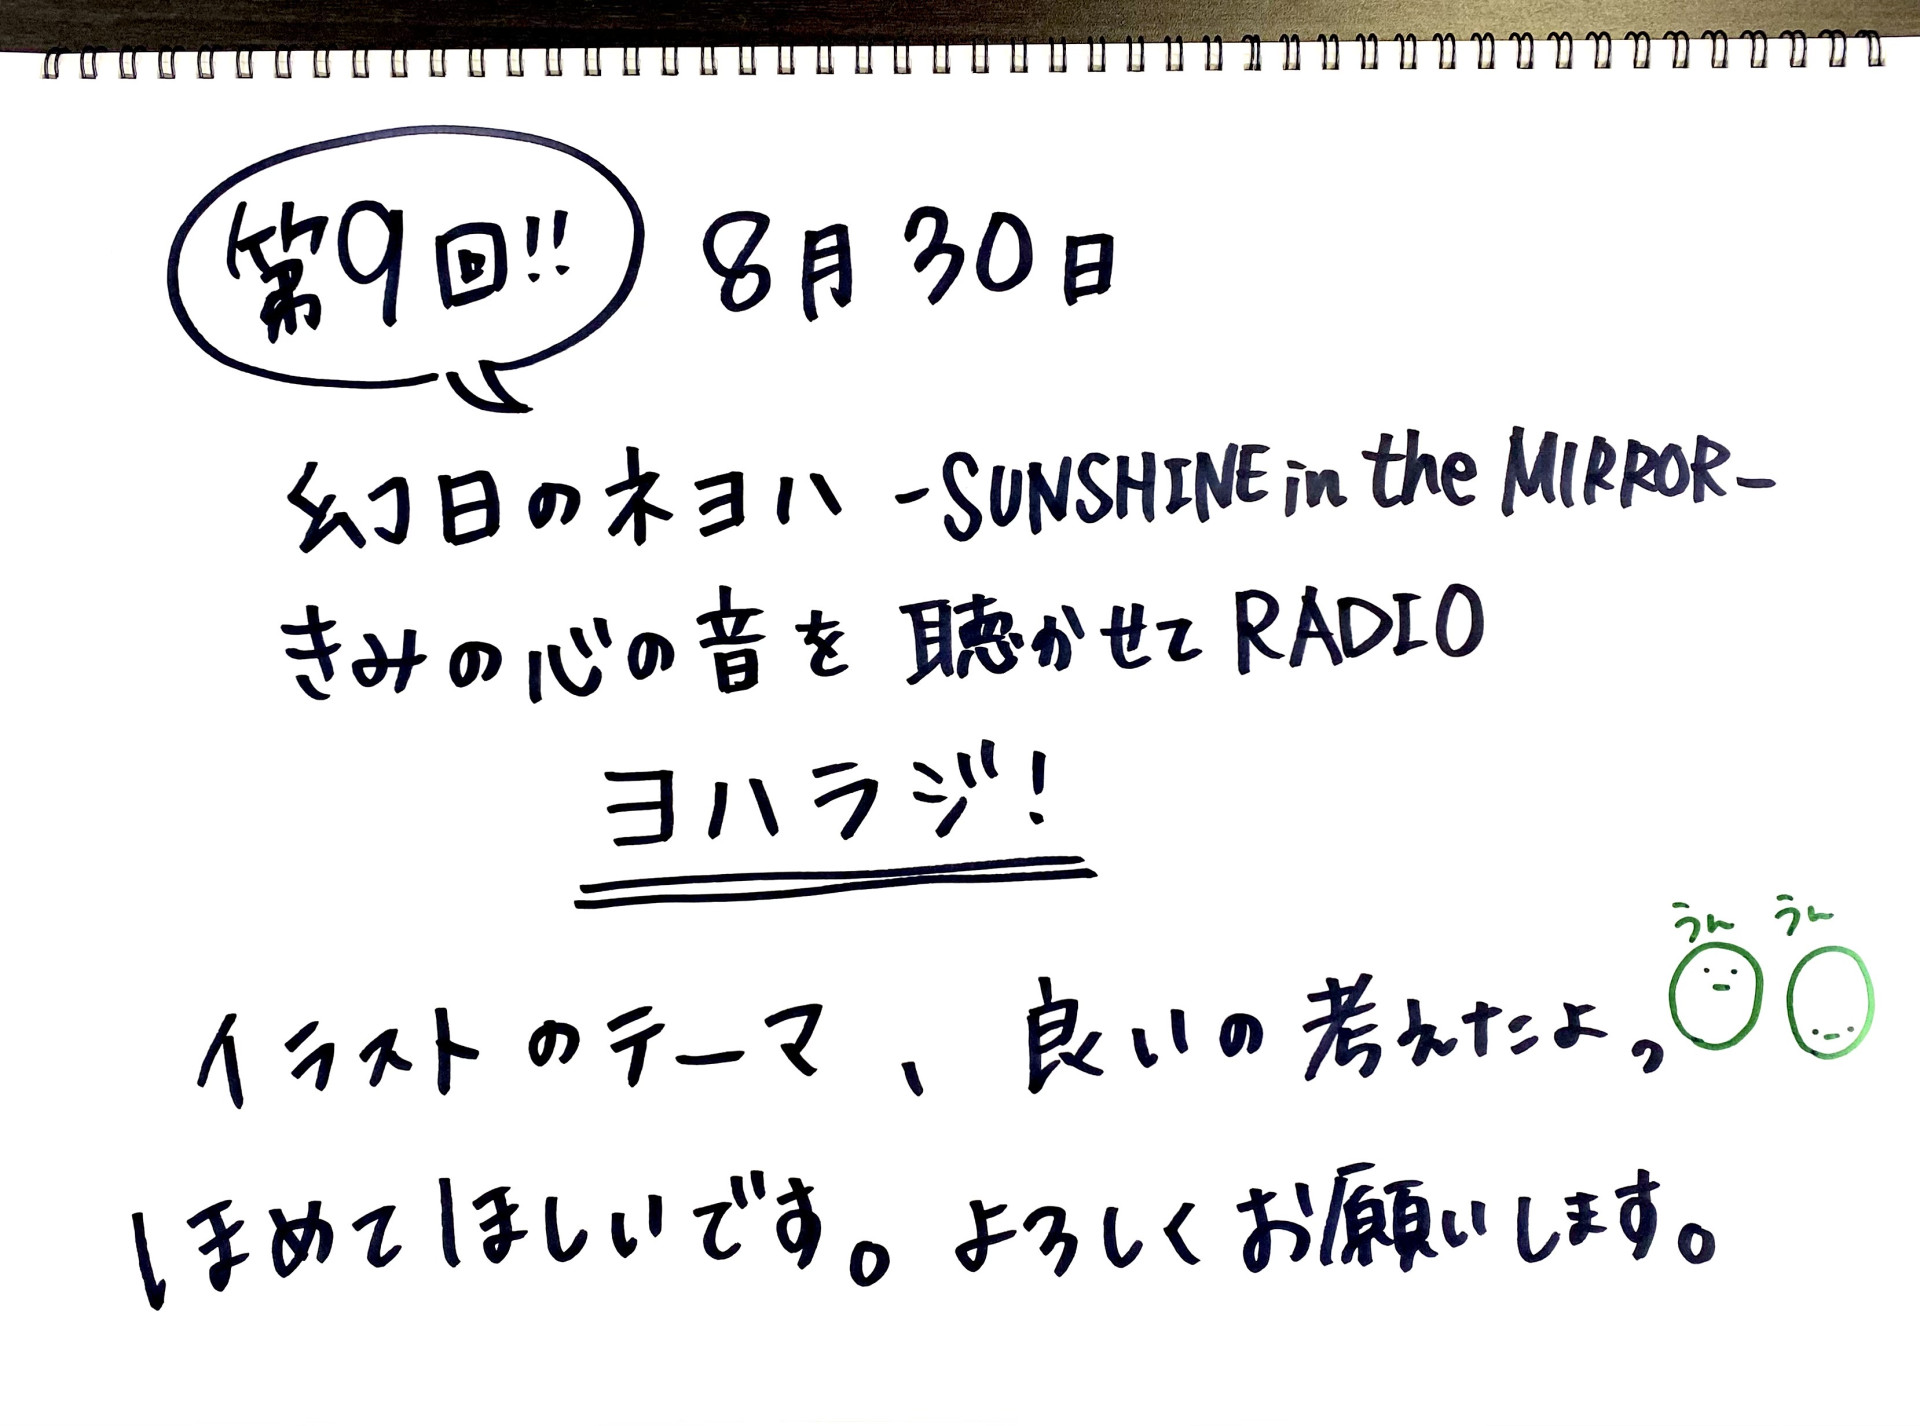 第9回!! 8月30日
幻日のネヨハ -SUNSHINE in the MIRROR-
きみの心の音を聴かせてRADIO
ヨハラジ!
うん うん
イラストのテーマ、良いの考えたよっ
ほめてほしいです。よろしくお願いします。